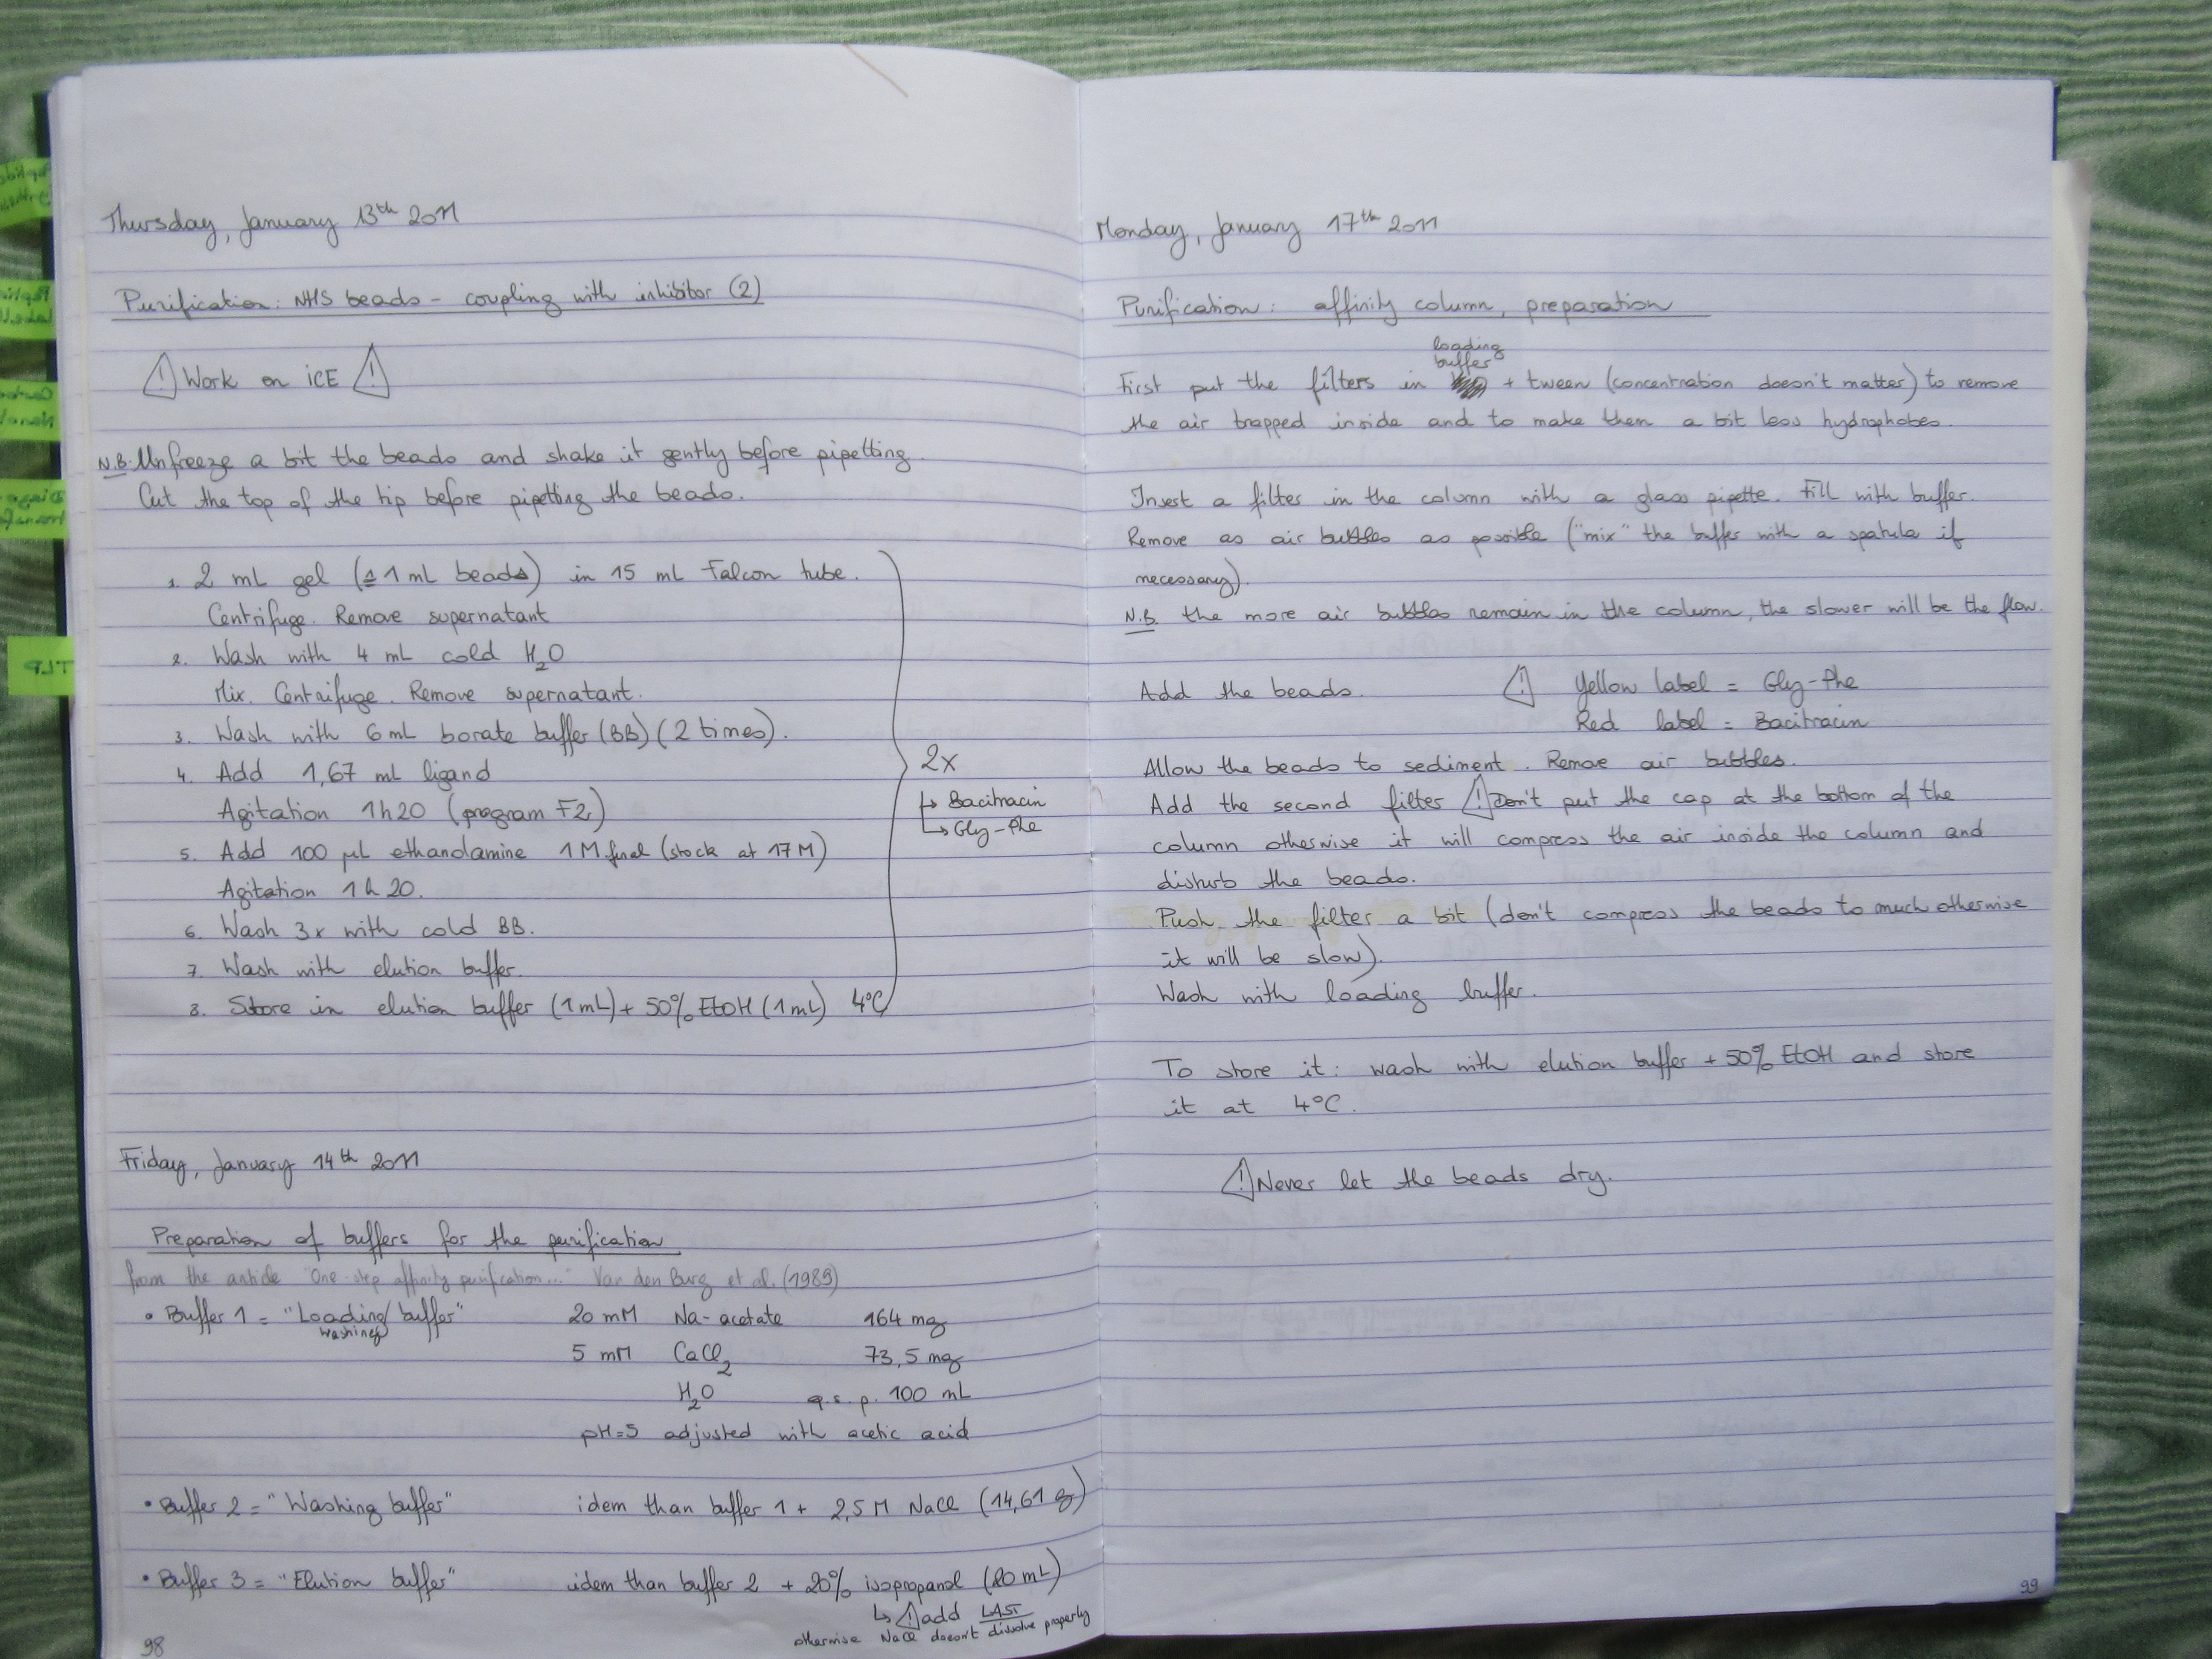 Thursday, January 13th 2011
Purification: NHS beads - coupling with inhibitor (2)
! Work on ICE !
N.B. Unfreeze a bit the beads and shake it gently before pipetting.
Cut the top of the tip before pipetting the beads.
1. 2 mL gel (≙ 1 mL beads) in 15 mL Falcon tube.
Centrifuge. Remove supernatant
2. Wash with 4 mL cold H2O
Mix. Centrifuge. Remove supernatant.
3. Wash with 6 mL borate buffer (BB) (2 times).
4. Add 1,67 mL ligand
Agitation 1h20 (program F2)
5. Add 100 µL ethanolamine 1M final (stock at 17 M)
Agitation 1h20.
6. Wash 3x with cold BB.
7. Wash with elution buffer.
8. Store in elution buffer (1mL) + 50% EtOH (1 mL) 4°C
2x
↳ Bacitracin
↳ Gly-Phe
Friday, January 14th 2011
Preparation of buffers for the purification
from the article "One-step affinity purification..." Van den Burg et al. (1989)
• Buffer 1 = "Loading/ buffer" 20 mM Na-acetate 164 mg
washing
5 mM CaCl2 73,5 mg
H2O q.s.p. 100 mL
pH=5 adjusted with acetic acid
• Buffer 2 = "Washing buffer" idem than buffer 1 + 2,5 M NaCl (14,61 g)
• Buffer 3 = "Elution buffer" idem than buffer 2 + 20% isopropanol (20 mL)
↳ ! add LAST
otherwise NaCl doesn't dissolve properly
98
Monday, January 17th 2011
Purification: affinity column, preparation
loading
buffer
First put the filters in + tween (concentration doesn't matter) to remove
the air trapped inside and to make them a bit less hydrophobes.
Insert a filter in the column with a glass pipette. Fill with buffer.
Remove as air bubbles as possible ("mix" the buffer with a spatula if
necessary).
N.B. the more air bubbles remain in the column, the slower will be the flow.
Add the beads. ! Yellow label = Gly-Phe
Red label = Bacitracin
Allow the beads to sediment. Remove air bubbles.
Add the second filter ! Don't put the cap at the bottom of the
column otherwise it will compress the air inside the column and
disturb the beads.
Push the filter a bit (don't compress the beads to much otherwise
it will be slow).
Wash with loading buffer.
To store it: wash with elution buffer + 50% EtOH and store
it at 4°C.
! Never let the beads dry.
99
TLP